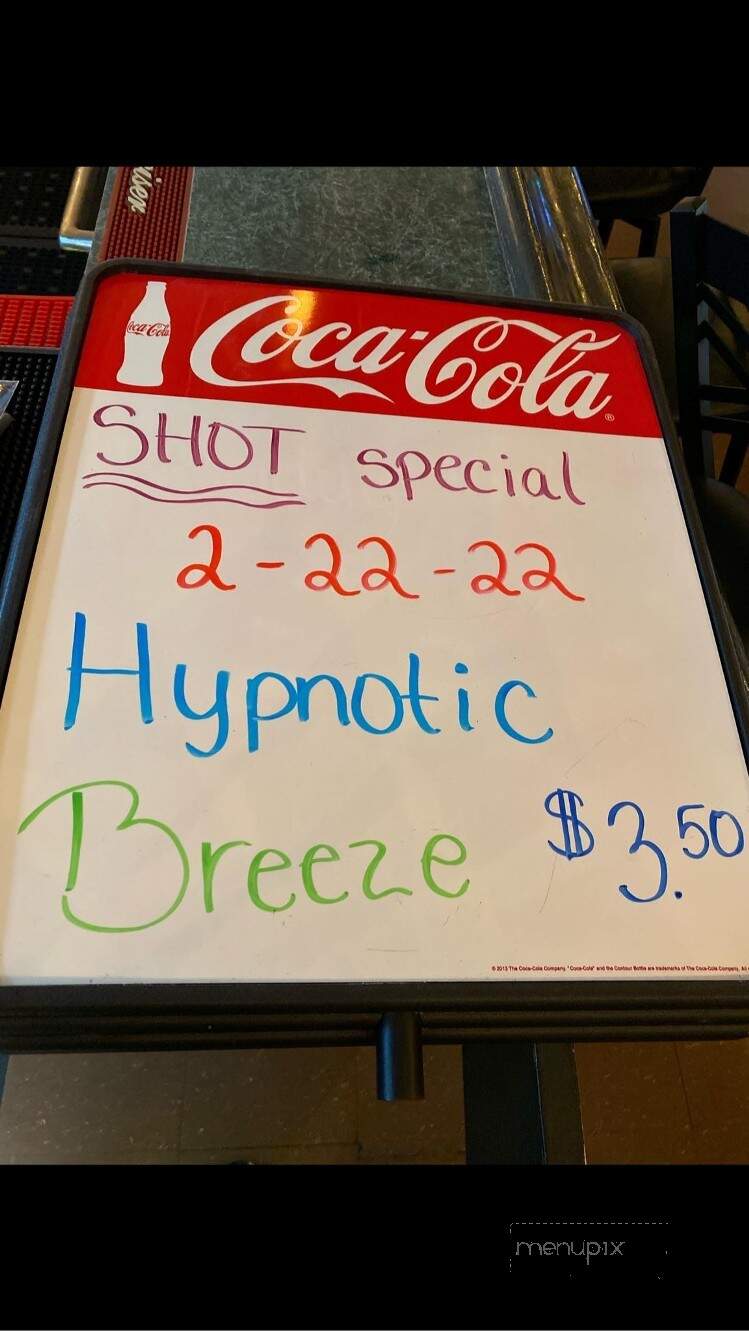 iser
Coca-Cola
Coca-Cola®
SHOT special
2-22-22
Hypnotic
Breeze $3.50
© 2013 The Coca-Cola Company. "Coca-Cola" and the Contour Bottle are trademarks of The Coca-Cola Company. All
menupix